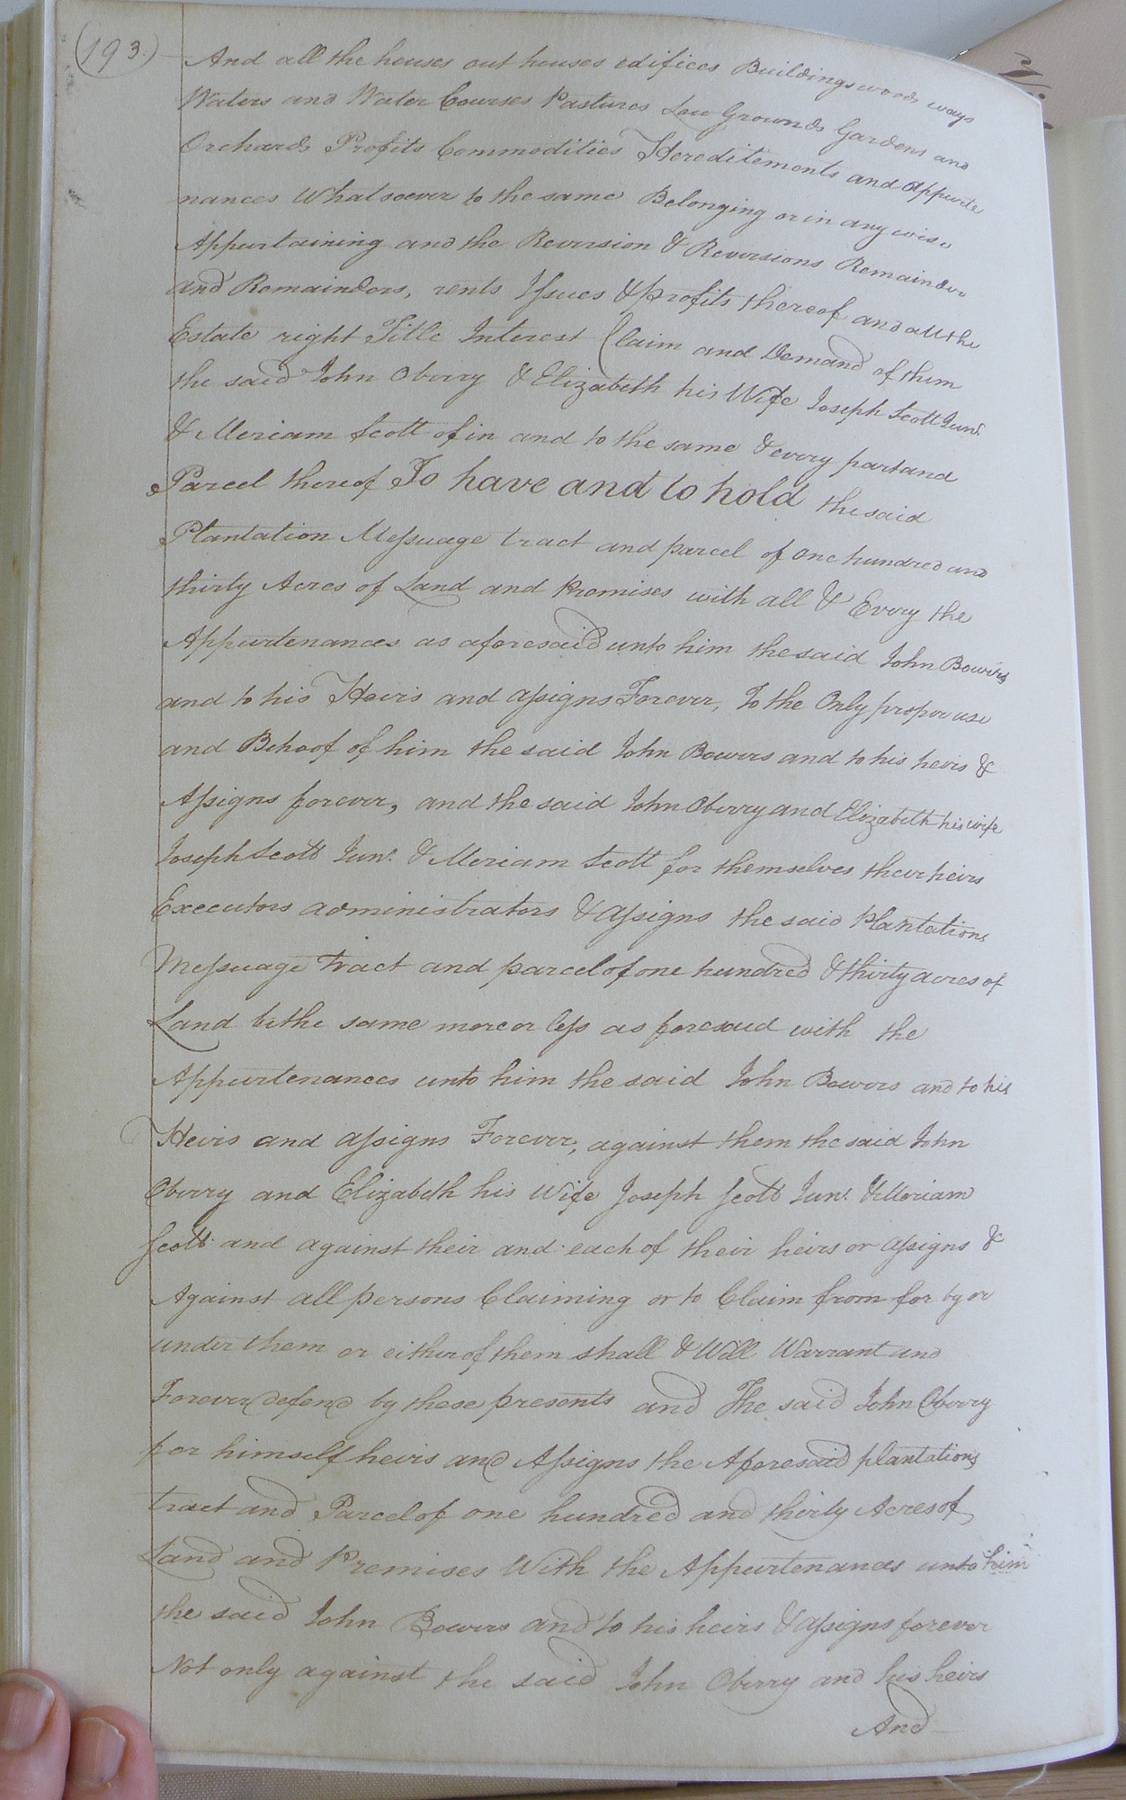 193.
And all the houses out houses edifices Buildings woods ways
Waters and Water Courses Pastures Low Grounds Gardens and
Orchards Profits Commodities Hereditements and Appurte
nances Whatsoever to the same Belonging or in any wise
Appurtaining and the Reversion & Reversions Remainder
and Remainders, rents Issues & profits thereof and all the
Estate right Title Interest Claim and Demand of them
the said John Oberry & Elizabeth his Wife Joseph Scott Junr.
& Meriam Scott of in and to the same & every part and
Parcel thereof To have and to hold the said
Plantation Messuage tract and parcel of one hundred and
thirty Acres of Land and Premises with all & Every the
Appurtenances as aforesaid unto him the said John Bowers
and to his Heirs and assigns Forever, To the Only proper use
and Behoof of him the said John Bowers and to his heirs &
Assigns forever, and the said John Oberry and Elizabeth his wife
Joseph Scott Junr. & Meriam Scott for themselves their heirs
Executors administrators & assigns the said Plantations
Messuage tract and parcel of one hundred & thirty acres of
Land be the same more or less as foresaid with the
Appurtenances unto him the said John Bowers and to his
Heirs and assigns Forever, against them the said John
Oberry and Elizabeth his Wife Joseph Scott Junr. & Meriam
Scott and against their and each of their heirs or assigns &
Against all persons Claiming or to Claim from for by or
under them or either of them shall & Will Warrant and
Forever defend by these presents and The said John Oberry
for himself heirs and Assigns the Aforesaid plantations
tract and Parcel of one hundred and thirty Acres of
Land and Premises With the Appurtenances unto him
the said John Bowers and to his heirs & assigns forever
Not only against the said John Oberry and his heirs
And